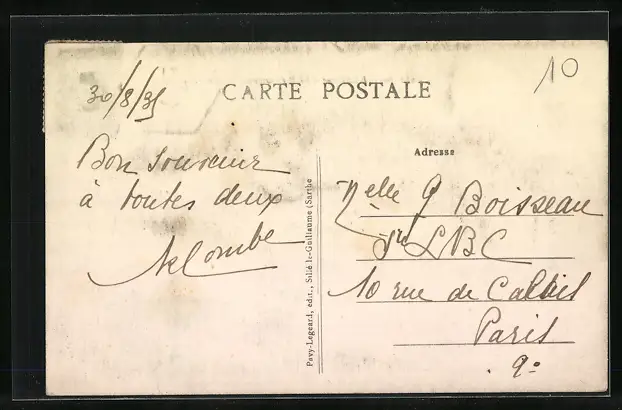 10
30/8/35
CARTE POSTALE
Bon souvenir
à toutes deux
Pavy-Legeard, édit., Sillé-le-Guillaume (Sarthe
Adresse
Melle G Boisseau
LBC
10 rue de Calais
Paris
9e